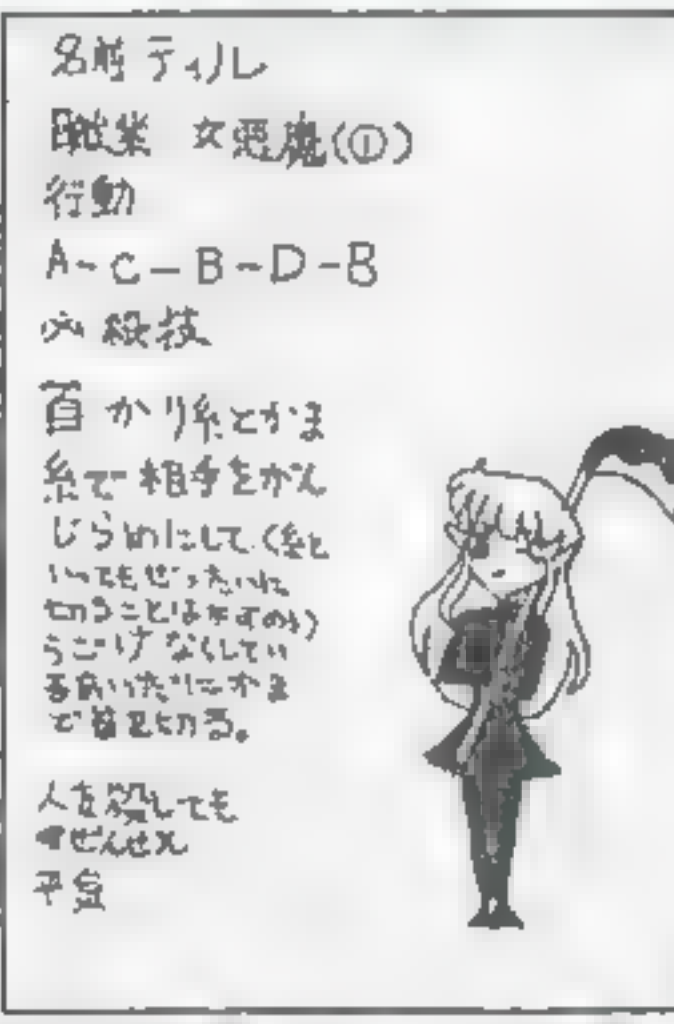 名前 ティル
職業 女悪魔(①)
行動
A-C-B-D-B
必殺技
首かり糸とかま
糸で相手をがん
じらめにして(糸と
いってもぜったいに
切ることはなずのい)
うごけなくしてい
る
で首を切る。
人を殺しても
ぜんぜん
平気